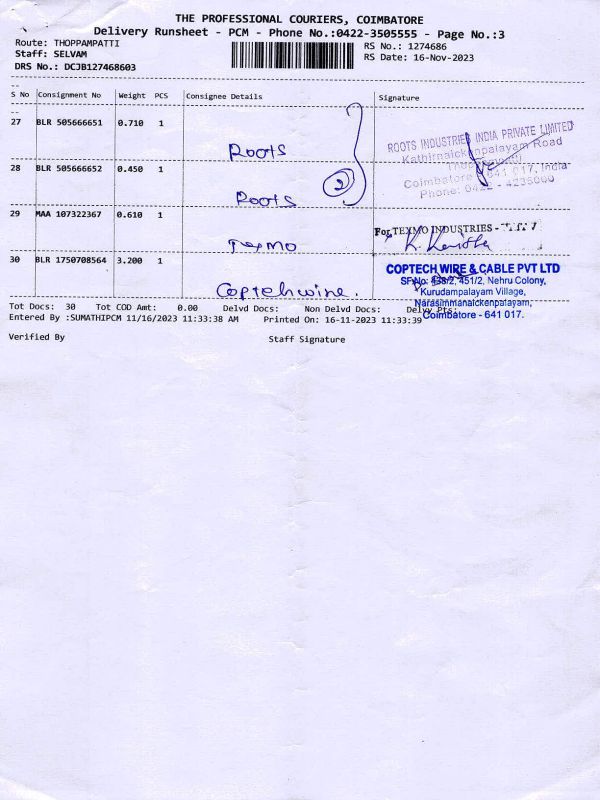 THE PROFESSIONAL COURIERS, COIMBATORE
Delivery Runsheet - PCM - Phone No.:0422-3505555 - Page No.:3
Route: THOPPAMPATTI
Staff: SELVAM
DRS No.: DCJB127468603
RS No.: 1274686
RS Date: 16-Nov-2023
S No Consignment No Weight PCS Consignee Details Signature
27 BLR 505666651 0.710 1 Roots
ROOTS INDUSTRIES INDIA PRIVATE LIMITED
Kathirnaickenpalayam Road
Coimbatore - 641 017, India
Phone: 0422 - 4235000
28 BLR 505666652 0.450 1 Roots
2
29 MAA 107322367 0.610 1 Texmo
For TEXMO INDUSTRIES -
30 BLR 1750708564 3.200 1 Coptechwire.
COPTECH WIRE & CABLE PVT LTD
SF No: 438/2, 451/2, Nehru Colony,
Kurudampalayam Village,
Narasimmanaickenpalayam,
Coimbatore - 641 017.
Tot Docs: 30 Tot COD Amt: 0.00 Delvd Docs: Non Delvd Docs: Delvy Pts:
Entered By :SUMATHIPCM 11/16/2023 11:33:38 AM Printed On: 16-11-2023 11:33:39
Verified By Staff Signature